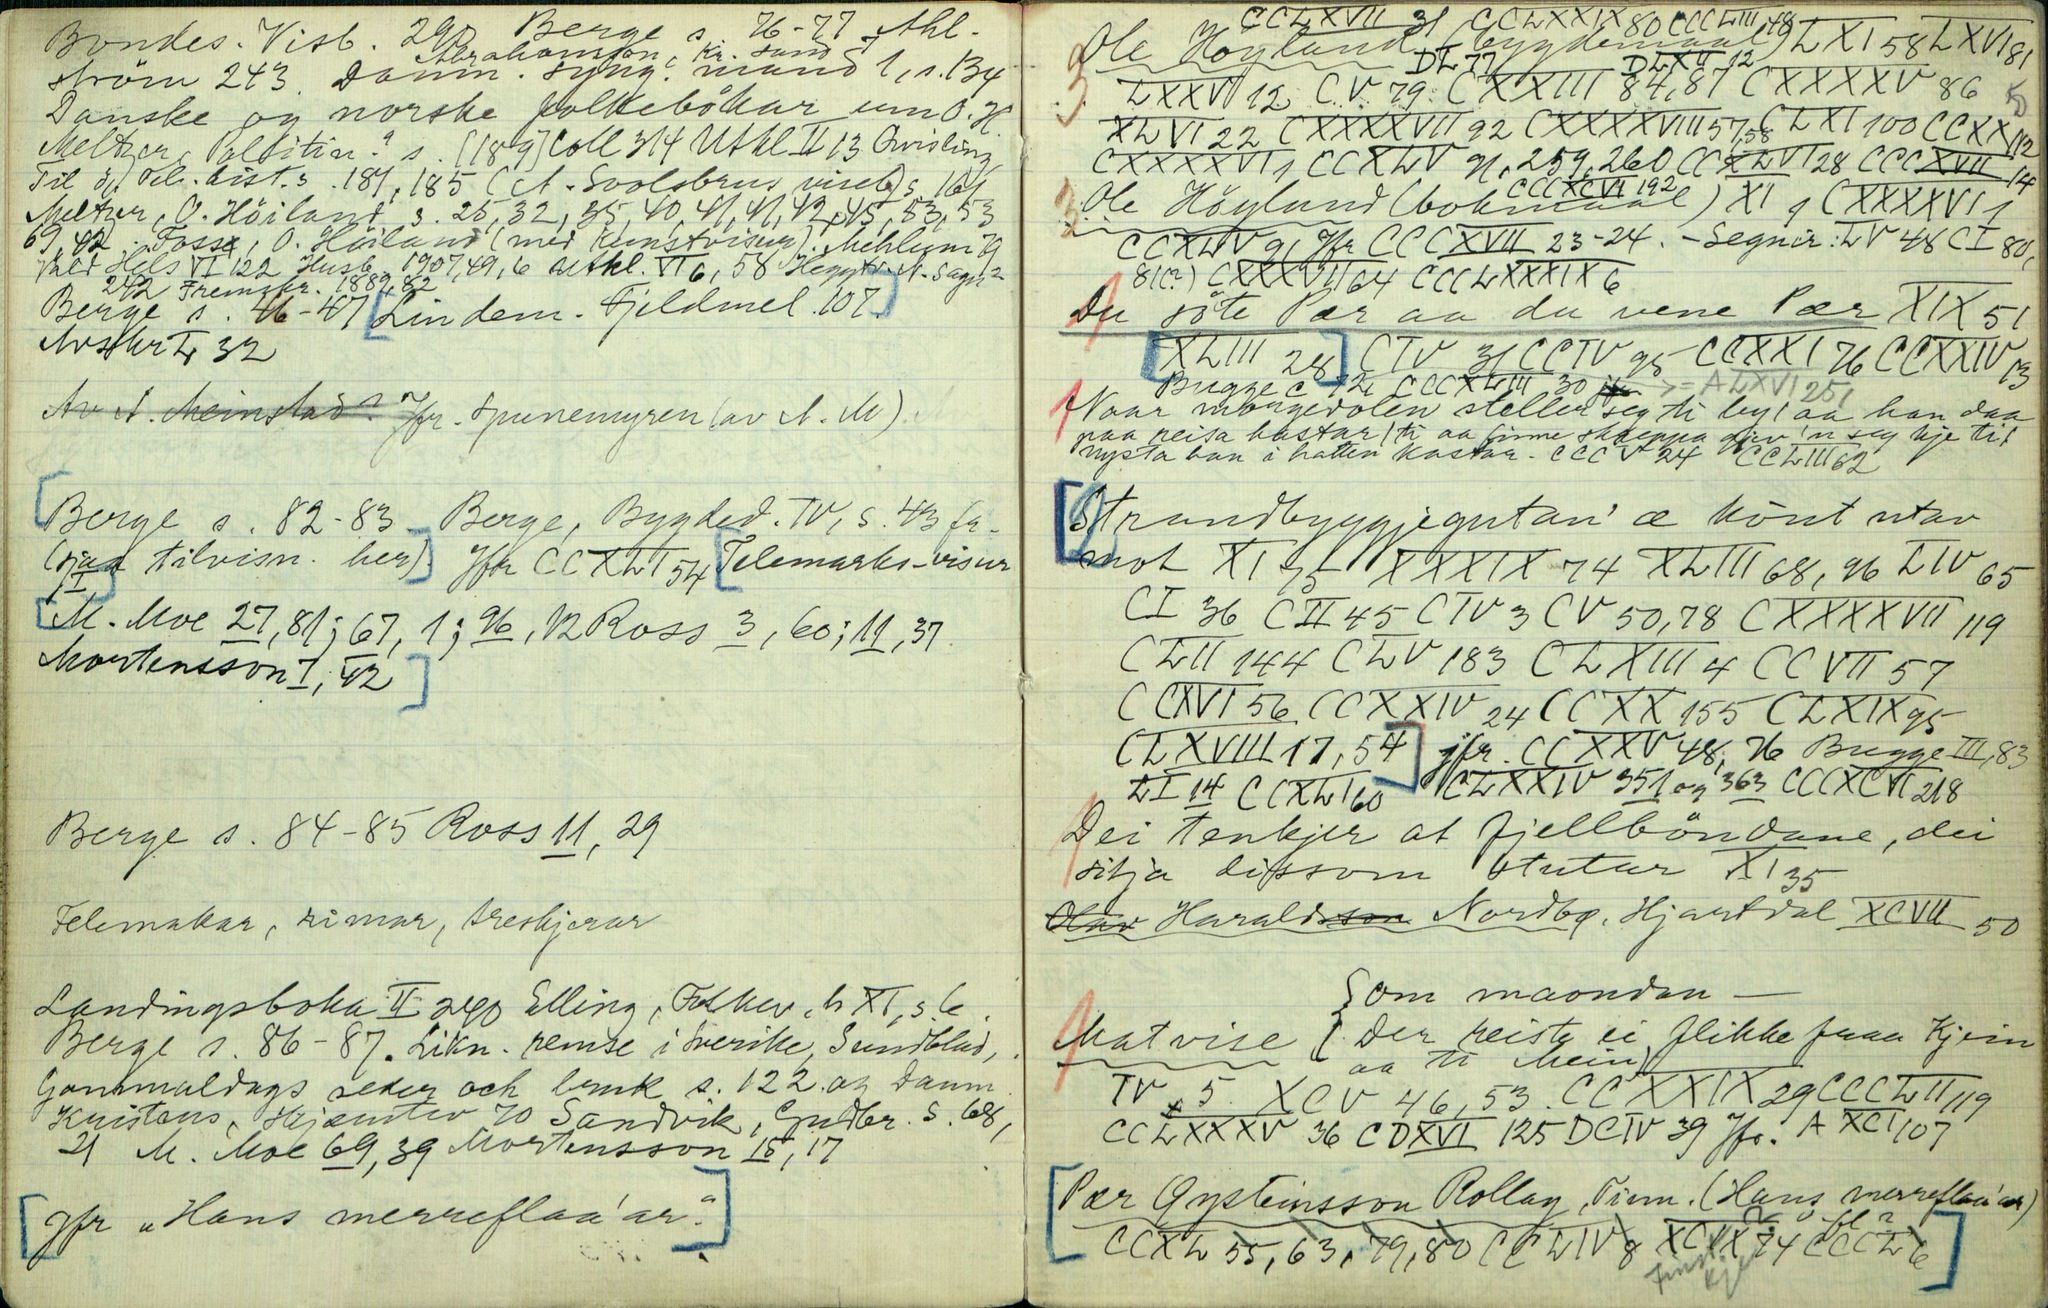 Bondes. Visb. 290 Berge s. 76-77 Ahl-
Abrahamson, Kr. Sund
ström 243. Danm. syng. mand 1, s. 134
Danske og norske folkebökar um O. H.
Meltzer, Politiin." s. [189] Coll 314 Utkl II 13 Qvisling,
Til Ö. Tel. hist. s. 181, 185 (A. Svolsbrus viseb) s. 161
Meltzer, O. Höiland s. 25, 32, 35, 40, 41, 41, 42, 45, 53, 53
69, 42. Fosse, O. Höiland (med Kunstvisur). Mehlum 79
Hels VI 122 Husb. 1907, 49, 6 Utkl. VI 6, 58 Heggtv. N. Sagn 2
242 Fremskr. 1889, 82
Berge s. 46-47 [Lindem. Fjeldmel. 107.]
Avskr L 32
Av A. Meinstad? Jfr. Spunemyren (av A. M)
[Berge s. 82-83. Berge, Bygded. IV, s. 43 fr.
(sjaa tilvisn. her)] Jfr CCXLI 54 [Telemarks-visur
I]
[M. Moe 27, 81; 67, 1; 96, 12 Ross 3, 60; 11, 37
Mortensson I, 42]
Berge s. 84-85 Ross 11, 29
Telemakar, rimar, treskjerar
Landingsboka II 290 Elling, Folkev. h XI, s. 6.
Berge s. 86-87. Likn. remse i Sverike, Sundblad,
Gammaldags seder och bruk s. 122. og Danm
Kristens, Hjemlev 70 Sandvik, Gudbr. S. 68,
21 M. Moe 69, 39 Mortensson 15, 17
[Jfr „Hans merreflaa'ar."]
CCLXVII 31 CCLXXIX 80 CCCLIII 48
3 Ole Höyland (bygdemaal) LXI 58 LXVI 81
DL 77 DLXII 12
LXXV 12 CV 79 CXXIII 84, 87 CXXXXV 86 50
XLVI 22 CXXXXVII 92 CXXXXVIII 57, 58 CLXI 100 CCXX 112
CXXXXVI 1 CCXLV 91, 259, 260 CCXLVI 28 CCCXVII 14
CCCXCVI 192
3 Ole Höyland (bokmaal) XI 1 CXXXXVI 1
CCXLV 91 Jfr CCCXVII 23-24. - Segnir: LV 48 CI 80,
81(?) CXXXVII 64 CCCLXXXIX 6
1 Du söte Pær aa du vene Pær XIX 51
[XLIII 28] CIV 31 CCIV 95 CCXXI 76 CCXXIV 13
Bugge C 72 CCCXLIII 30 = ALXVI 251
1 Naar morgedolen steller seg ti by! aa han daa
paa reisa hastar / ti aa finne skreppa gjev 'n seg kje ti!
nysta han i hatten kastar. CCCV 24 CCLIII 62
[Strandbyggjegutan' æ könt utav
mot XI 75 XXXIX 74 XLIII 68, 96 LIV 65
CI 36 CII 45 CIV 3 CV 50, 78 CXXXXVII 119
CLII 144 CLV 183 CLXIII 4 CCVII 57
CCXVI 56 CCXXIV 24 CCXX 155 CLXIX 95
CLXVIII 17, 54] jfr. CCXXV 48, 76 Bugge III, 83
LI 14 CCXLI 60 CLXXIV 351 og 363 CCCXCVI 218
1 Dei tenkjer at fjellböndane, dei
sitja dissom stutar XI 35
Olav Haraldsson Nordbø. Hjartdal XCVII 50
Som maondan —
1 Matvise { Der reiste ei flikke fraa Kjein
aa ti Mein}
IV 5. XCV 46, 53. CCXXIX 29 CCCLII 119
CCLXXXV 36 CDXVI 125 DCIV 39 Jfr. A XCI 107
[Pær Øysteinsson Rollag, Tinn. (Hans merreflaa'ar)
CCXL 55, 63, 79, 80 CCLIV 8 XCIX 74 CCCL 6]